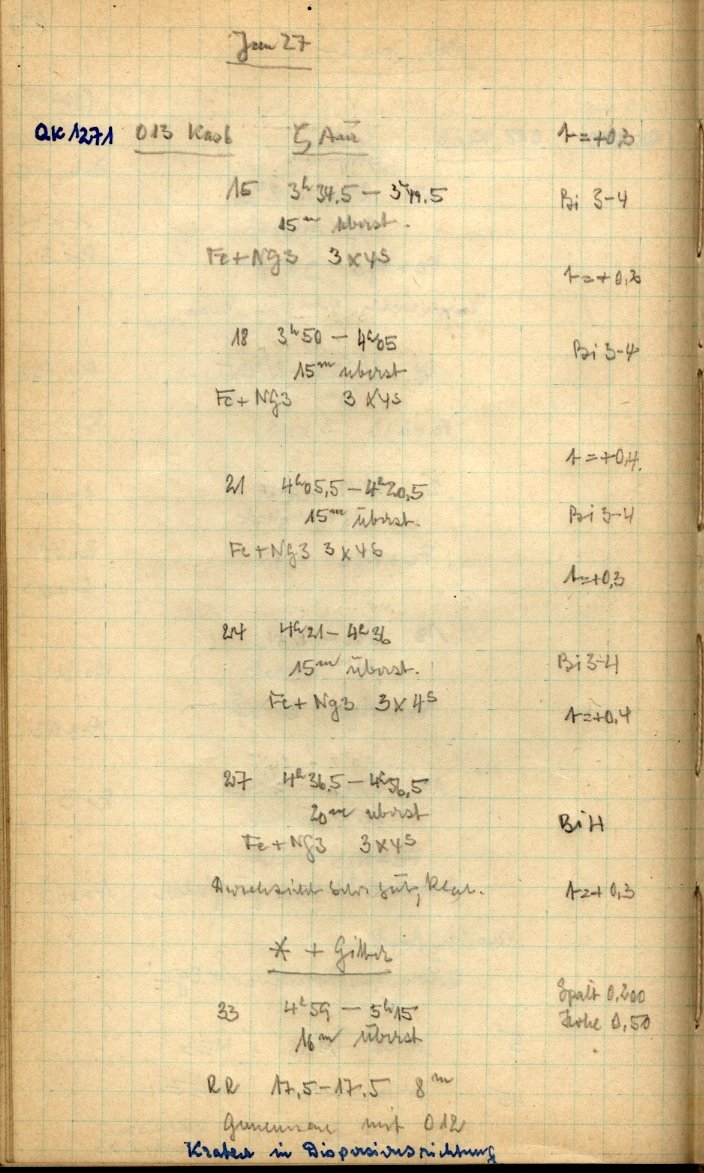 Jan 27
QK1271 013 Kasb ζ Aur t=+0,3
15 3h34,5 — 3h49.5 Bi 3-4
15m überst.
Fe+Ng3 3x4s
t=+0,3
18 3h50 — 4h05 Bi 3-4
15m überst
Fe+Ng3 3x4s
t=+0,4.
21 4h05,5 — 4h20,5
15m überst. Bi 3-4
Fe+Ng3 3x4s
t=+0,3
24 4h21 — 4h36
15m überst. Bi 3-4
Fe+Ng3 3x4s t=+0,4
27 4h36,5 — 4h56,5
20m überst Bi 4
Fe+Ng3 3x4s
Durchsicht sehr gut, klar. t=+0,3
* + Gitter
Spalt 0,200
33 4h59 — 5h15 Höhe 0,50
16m überst
RR 17,5-17.5 8m
Gemeinsam mit 012
Kratzer in Dispersionsrichtung